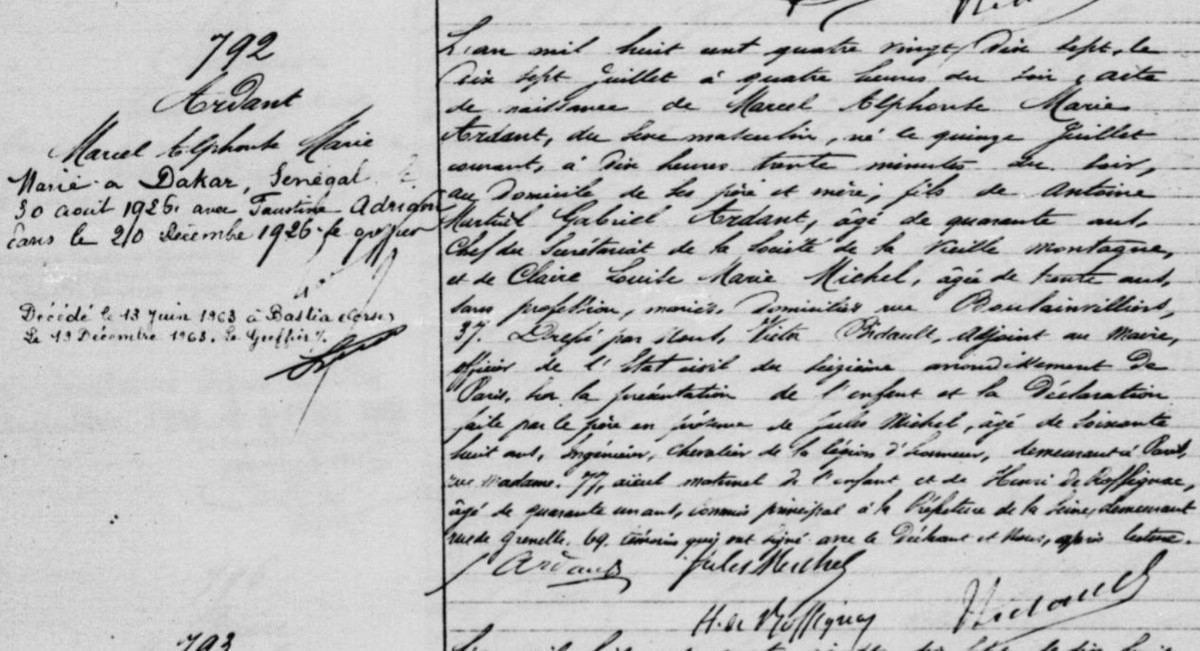 792
Ardant
Marcel Alphonse Marie
Marié à Dakar, Sénégal le
30 août 1926 avec Faustine
Paris le 20 Décembre 1926 le greffier
Décédé le 13 Juin 1963 à Bastia (Corse)
Le 19 Décembre 1963. Le Greffier /.
L'an mil huit cent quatre vingt dix sept, le
dix sept Juillet à quatre heures du soir, acte
de naissance de Marcel Alphonse Marie
Ardant, du sexe masculin, né le quinze Juillet
courant, à dix heures trente minutes du soir,
au domicile de ses père et mère; fils de Antoine
Gabriel Ardant, âgé de quarante ans,
Chef du Secrétariat de la Société de la Vieille Montagne,
et de Claire Louise Marie Michel, âgée de trente ans,
sans profession, mariés, domiciliés rue Boulainvilliers,
37. Dressé par Nous, Victor adjoint au Maire,
officier de l'Etat civil du seizième arrondissement de
Paris, sur la présentation de l'enfant et la Déclaration
faite par le père en présence de Jules Michel, âgé de soixante
huit ans, Ingénieur, Chevalier de la légion d'honneur, demeurant à Paris,
rue Madame. 77, aïeul maternel de l'enfant et de Henri de Roffignac,
âgé de quarante un ans, commis principal à la Préfecture de la Seine, demeurant
rue de Grenelle. 69. témoins qui ont signé avec le Déclarant et Nous, après lecture.
Ardant Jules Michel
H. de Roffignac
793